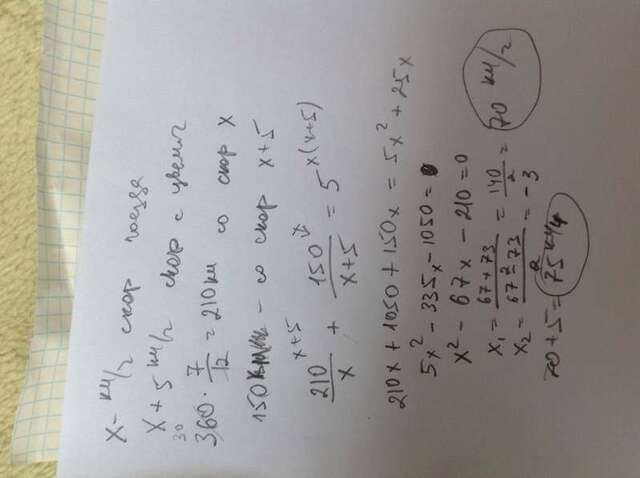 x - км/ч скор поезда
x + 5 км/ч скор с увелич
30
360 · 7/12 = 210 км со скор x
150 км - со скор x+5
210/x ^(x+5) + 150/(x+5) ^(x) = 5 ^(x(x+5))
210x + 1050 + 150x = 5x² + 25x
5x² - 335x - 1050 = 0
x² - 67x - 210 = 0
x₁ = (67 + 73)/2 = 140/2 = 70 км/ч
x₂ = (67 - 73)/2 = -3
70 + 5 = 75 км/ч